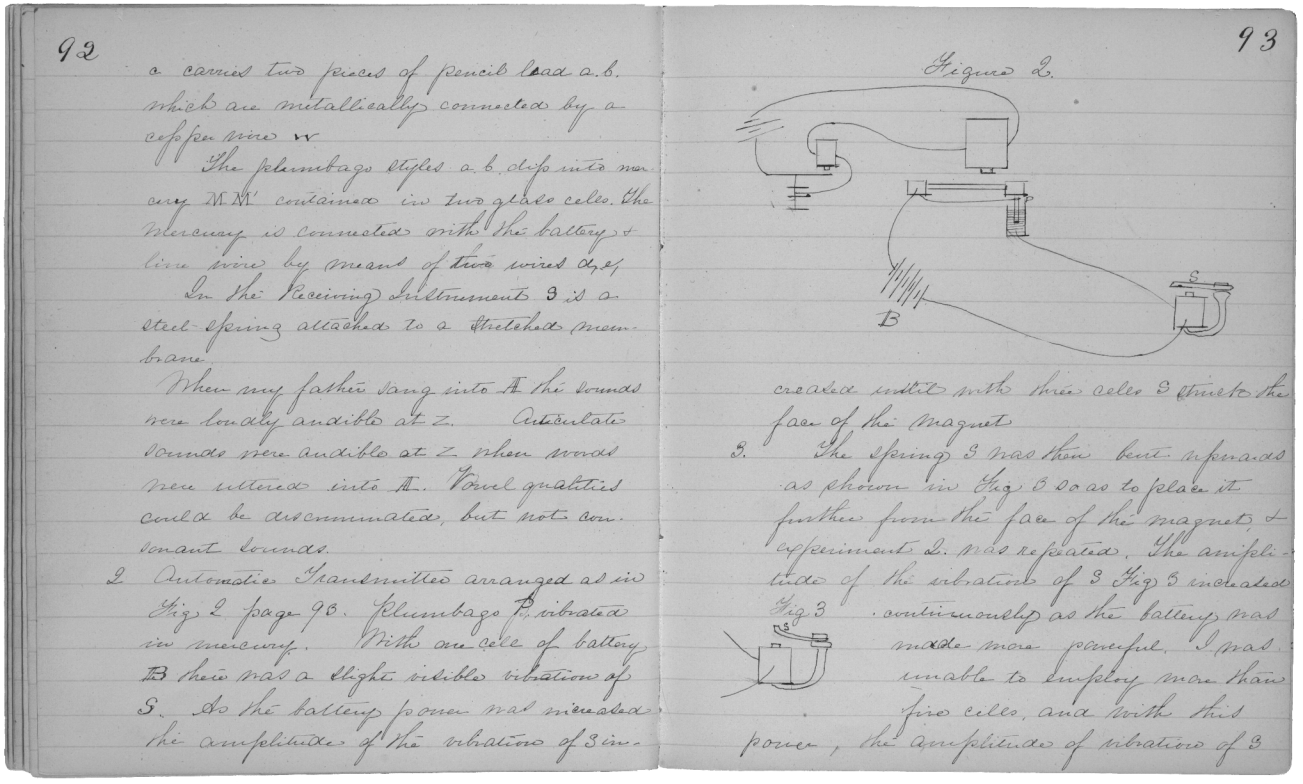 92
c carries two pieces of pencil lead a.b.
which are metallically connected by a
copper wire w
The plumbago styles a.b. dip into mer-
cury M M' contained in two glass cells. The
mercury is connected with the battery &
line wire by means of two wires d, e,
In the Receiving Instrument S is a
steel-spring attached to a stretched mem-
brane.
When my father sang into A the sounds
were loudly audible at Z. Articulate
sounds were audible at Z when words
were uttered into A. Vowel qualities
could be discriminated, but not con-
sonant sounds.
2 Automatic Transmitter arranged as in
Fig 2 page 93. Plumbago P, vibrated
in mercury. With one cell of battery
B there was a slight visible vibration of
S. As the battery power was increased
the amplitude of the vibration of S in-
93
Figure 2.
S
B
creased until with three cells S struck the
face of the magnet
3. The spring S was then bent upwards
as shown in Fig 3 so as to place it
further from the face of the magnet, &
experiment 2. was repeated. The ampli-
tude of the vibration of S Fig 3 increased
Fig 3 continuously as the battery was
S
made more powerful. I was
unable to employ more than
five cells, and with this
power, the amplitude of vibration of S